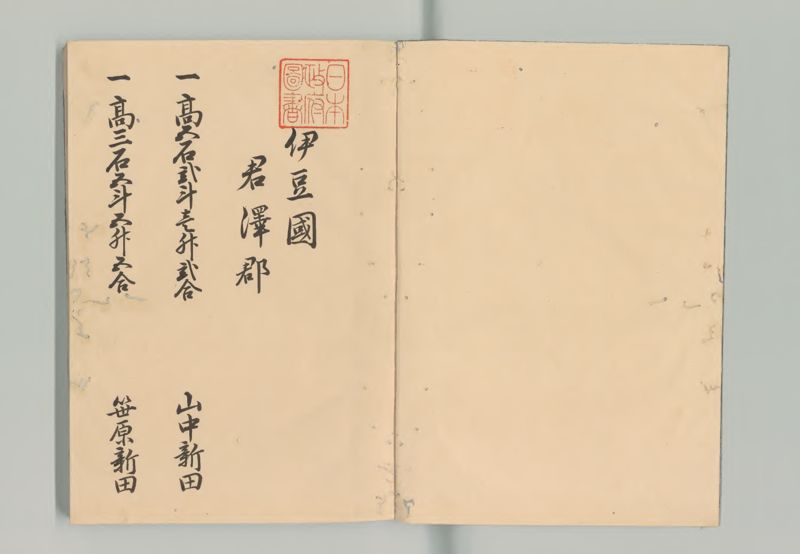 日本
政府
圖書
伊豆國
君澤郡
一高五石弐斗壱升弐合
山中新田
一高三石五斗五升五合
笹原新田